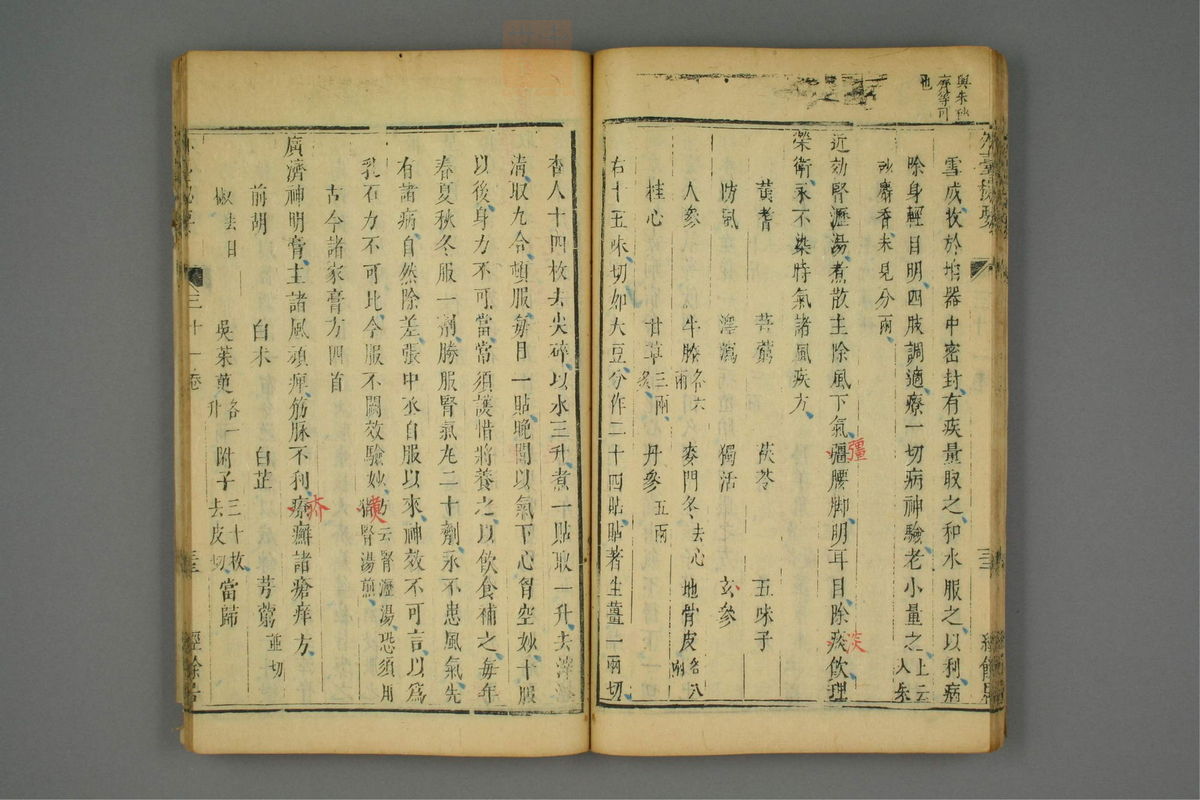 與朱砂
齊等可
也
外臺秘要
雪成收於垍器中密封有疾量取之和水服之以利病
除身輕目明四肢調適療一切病神驗老小量之上云入朱
砂麝香末見分兩
近効腎瀝湯煮散主除風下氣彊腰脚明耳目除痰飲理
彊
淡
榮衛永不染時氣諸風疾方
黃耆 芎藭 茯苓 五味子
防風 澤瀉 獨活 玄參
人參 牛膝各六兩 麥門冬去心 地骨皮各八兩
桂心 甘草三兩炙 丹參五兩
右十五味切如大豆分作二十四貼貼著生薑一兩切
杏人十四枚去尖碎以水三升煮一貼取一升去滓
清取九合頓服每日一貼晚間以氣下心胷空妙十服
以後身力不可當常須護惜將養之以飲食補之每年
春夏秋冬服一劑勝服腎氣丸二十劑永不患風氣先
有諸病自然除差張中丞自服以來神效不可言以爲
乳石力不可比今服不闕效驗妙方云腎瀝湯恐須用獺腎湯煎
古今諸家膏方四首
廣濟神明膏主諸風頑痺筋脉不利療癬諸瘡痒方
疥
前胡 白朮 白芷 芎藭並切
椒去目 吳茱萸各一升 附子三十枚去皮切 當歸
三十一卷
三三
經餘居